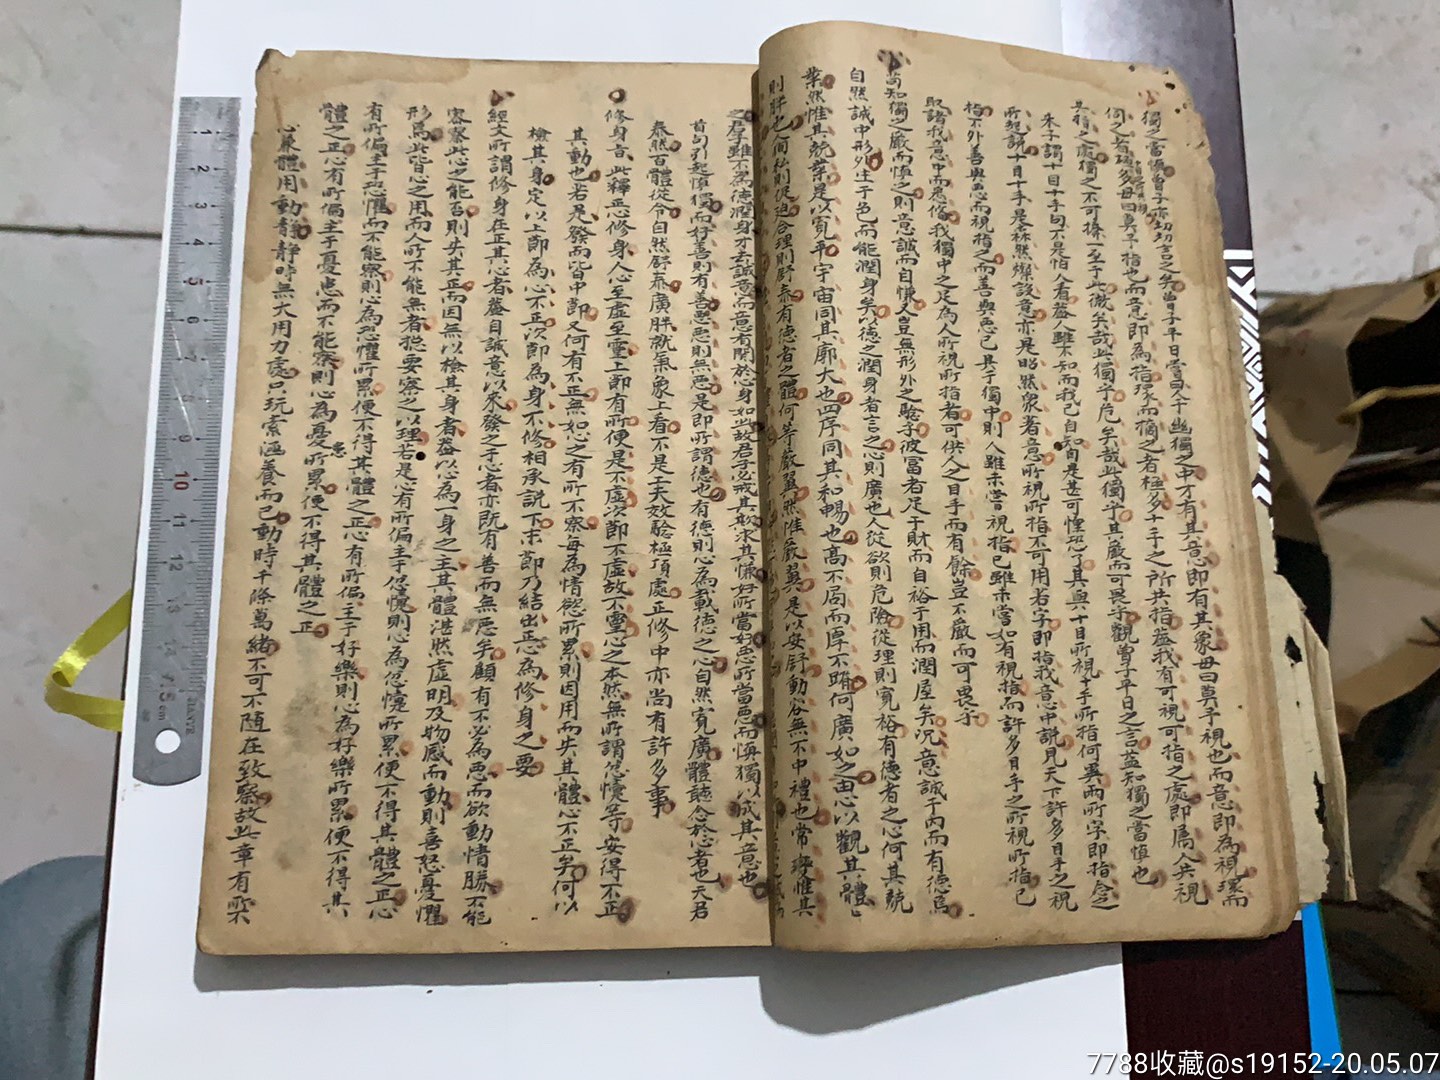 獨之當慎曾子亦切切言之矣曾子平日嘗曰人于幽獨之中才有其意即有其象毋曰莫予視也而意即為視環而
伺之者項多毋曰莫予指也而意即為指環而摘之者極多十手之所共指蓋我有可視可指之處即屬人共視
共指之處獨之不可掩一至于此微矣哉此獨乎危矣哉此獨乎其嚴而可畏乎觀曾子平日之言益知獨之當慎也
朱子謂十目十手句不是怕人看蓋人雖不知而我已自知自是甚可惶恐了其與十目所視十手所指何異兩所字即指念之
所起說十目十手是森然燦設意亦是昭然衆著意所視所指不可用若字即指我意中說見天下許多目手之視
指不外善與惡而視指之而善與惡已具于獨中則人雖未嘗視指已雖未嘗如有視指而許多目手之所視所指已
取諸我意中而悉備我獨中之足為人所視所指者可供人之目手而有餘豈不嚴而可畏乎
苟知獨之嚴而慎之則意誠而自慊人豈無形外之驗乎彼富者足于財而自裕于用而潤屋矣況意誠于中而有德焉
自然誠中形外生于色而能潤身矣德之潤身者言之心則廣也人從欲則危險從理則寬裕有德者之心何其兢
業然惟其兢業是以寬平宇宙同其廓大也四序同其和暢也高不局而厚不蹐何廣如之由心以觀其體
則胖也人間私則促迫合理則舒泰有德者之體何等嚴翼然惟嚴翼是以安舒動容無不中禮也常變惟其
之君子雖不為德潤身才去誠意而意有關於心身如此故君子必戒其欺求其慊好所當好惡所當惡而慎獨以誠其意也
首句引起慎獨而好善則有善惡惡則無惡是即所謂德也有德則心為載德之心自然寬廣體聽令於心者也天君
泰然百體從令自然舒泰廣胖就氣象上看不是工夫效驗極項處正修中亦尚有許多事
修身章此釋正心修身人心至虛至靈上節有所便是不虛次節不虛故不靈心之本然無所謂忿懥等安得不正
其動也若是發而皆中節又何有不正無如心之有所不察每為情慾所累則因用而失其體心不正矣何以
檢其身定以上節為心不正次節為身不修相承說下末節乃結出正心為修身之要
經文所謂修身在正其心者蓋自誠意以來發之于心者亦既有善而無惡矣顧有不必為惡而欲動情勝不能
密察此心之能否則失其正而因無以檢其身者蓋以心為一身之主其體湛然虛明及物感而動則喜怒憂懼
形焉此皆心之用而人所不能無者總要察之以理若是心有所偏主于忿懥則心為忿懥所累便不得其體之正心
有所偏主于恐懼而不能察則心為恐懼所累便不得其體之正心有所偏主于好樂則心為好樂所累便不得其
體之正心有所偏主于憂患而不能察則心為憂患所累便不得其體之正
心兼體用動靜靜時無大用力處只玩索涵養而已動時千條萬緒不可不隨在致察故此章有所
7788收藏@s19152-20.05.07